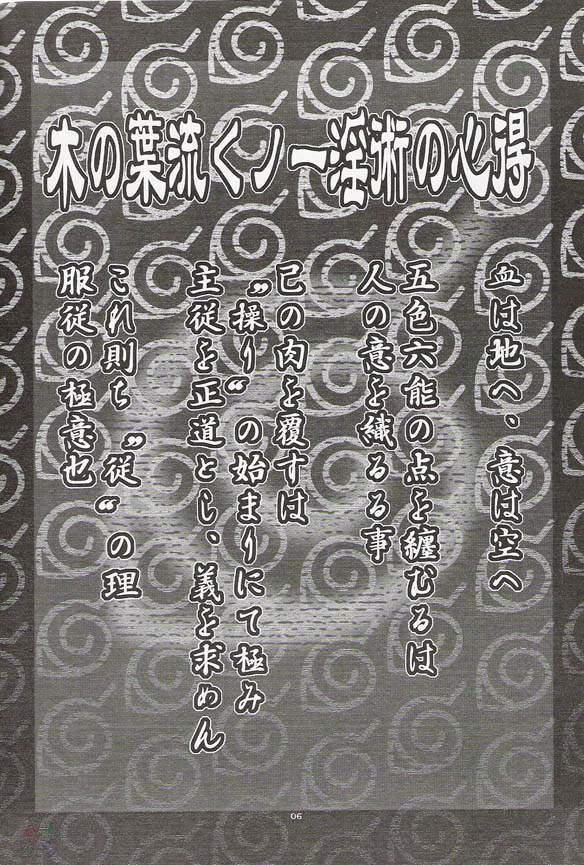 木の葉流くノ一淫術の心得
血は地へ、意は空へ
五色六能の点を纏むるは
人の意を織るる事
己の肉を覆すは
"操り"の始まりにて極み
主従を正道とし、義を求めん
これ則ち"従"の理
服従の極意也
06